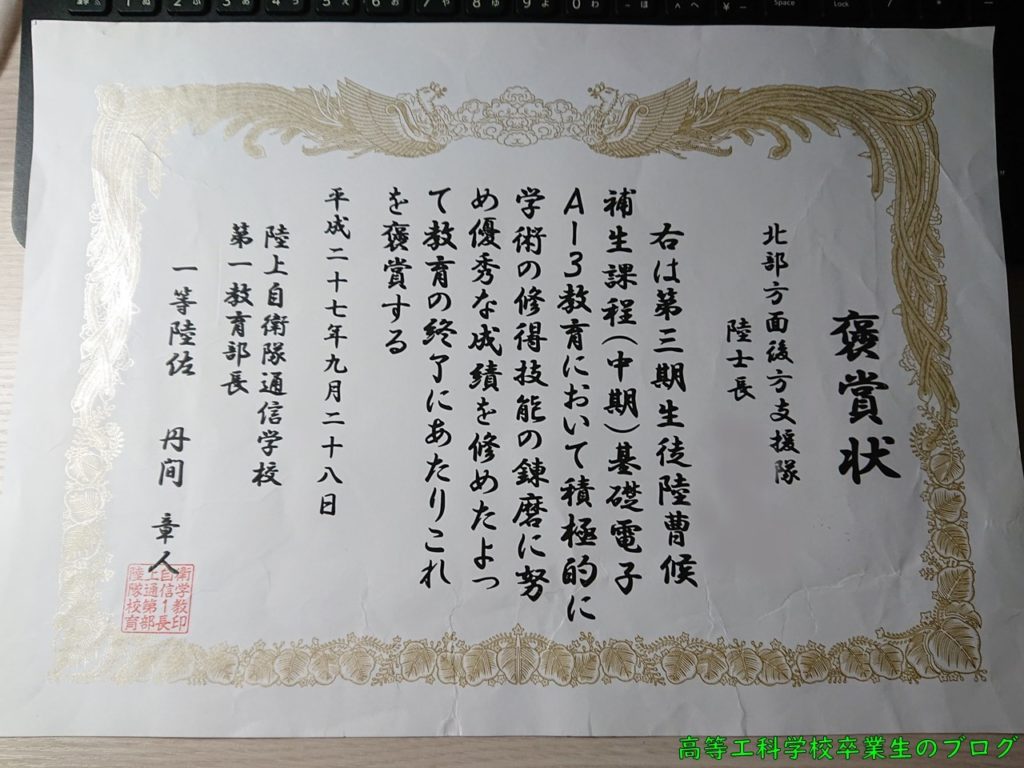 褒賞状
北部方面後方支援隊
陸士長
右は第三期生徒陸曹候
補生課程(中期)基礎電子
A-3教育において積極的に
学術の修得技能の錬磨に努
め優秀な成績を修めたよっ
て教育の終了にあたりこれ
を褒賞する
平成二十七年九月二十八日
陸上自衛隊通信学校
第一教育部長
一等陸佐 丹間 章人
衛学教印
自信1長
上通第部
陸隊校育
高等工科学校卒業生のブログ